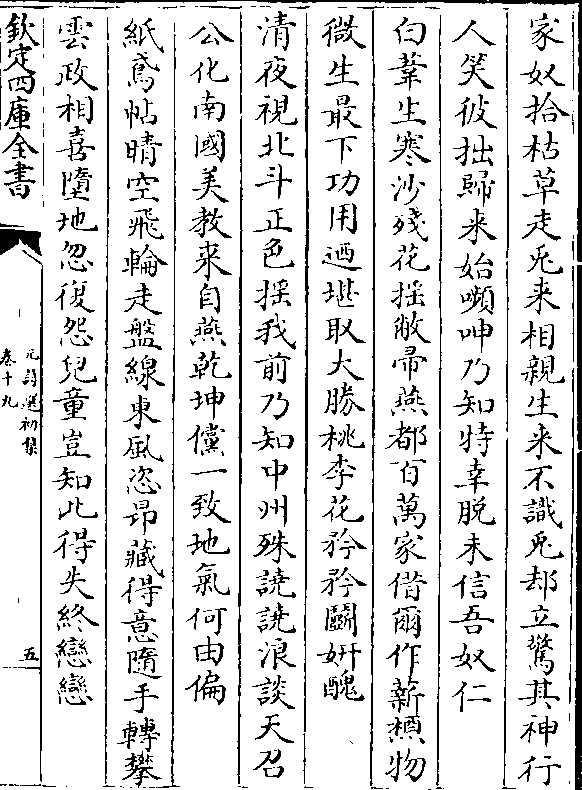 家奴拾枯草走兎来相親生来不識兎却立驚其神行
人笑彼拙歸来始嚬呻乃知特幸脱未信吾奴仁
白葦生寒沙殘花揺敝帚燕都百萬家借爾作薪槱物
微生最下功用迺堪取大勝桃李花矜矜鬭妍醜
清夜視北斗正色揺我前乃知中州殊譊譊浪談天召
公化南國美教来自燕乾坤儻一致地氣何由偏
紙鳶帖晴空飛輪走盤線東風恣昂藏得意隨手轉攀
雲政相喜墮地忽復怨兒童豈知此得失終戀戀
欽定四庫全書
元詩選初集
卷十九
五